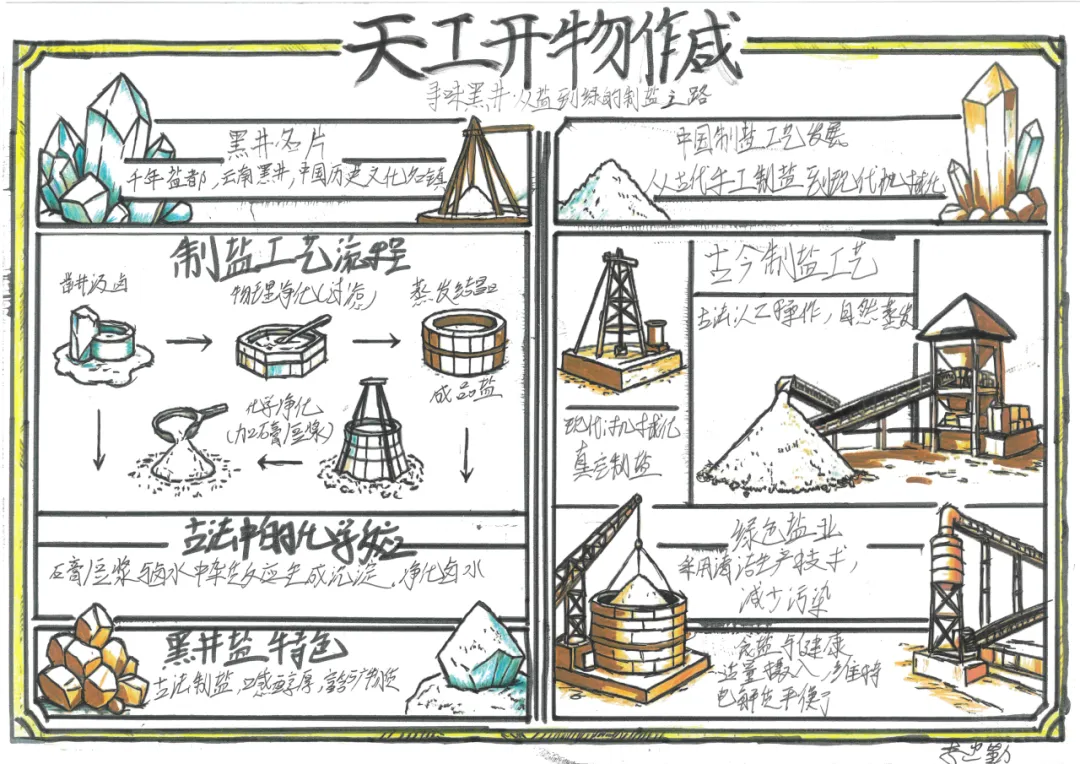 天工开物作咸
寻味黑井从盐到绿的制盐之路
黑井名片
千年盐都，云南黑井，中国历史文化名镇
制盐工艺流程
凿井汲卤
物理净化(过滤)
蒸发结晶
成品盐
化学净化
(加石膏/豆浆)
古法中的化学效应
石膏/豆浆与卤水中杂质反应生成沉淀，净化卤水
黑井盐特色
古法制盐，口感醇厚，富含矿物质
中国制盐工艺发展
从古代手工制盐到现代机械化
古今制盐工艺
古法人工操作，自然蒸发
现代机械化
真空制盐
绿色盐业
采用清洁生产技术，
减少污染
食盐与健康
适量摄入，维持
电解质平衡